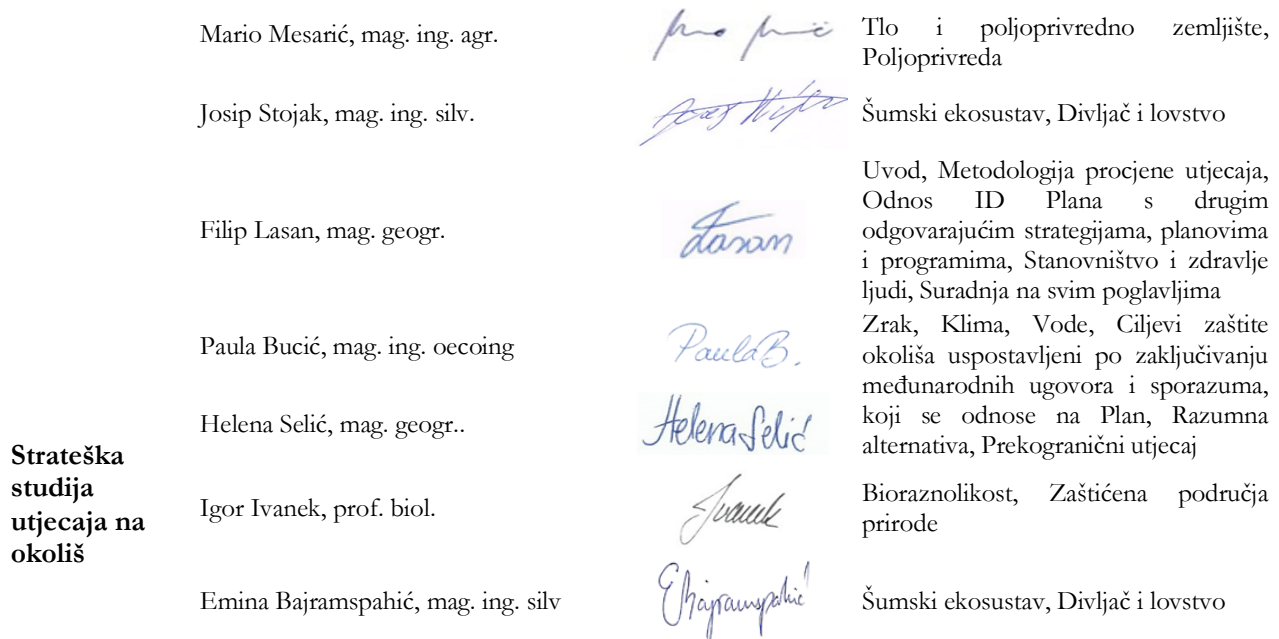 Mario Mesarić, mag. ing. agr.
Tlo i poljoprivredno zemljište,
Poljoprivreda
Josip Stojak, mag. ing. silv.
Šumski ekosustav, Divljač i lovstvo
Filip Lasan, mag. geogr.
Lasan
Uvod, Metodologija procjene utjecaja,
Odnos ID Plana s drugim
odgovarajućim strategijama, planovima
i programima, Stanovništvo i zdravlje
ljudi, Suradnja na svim poglavljima
Paula Bucić, mag. ing. oecoing
PaulaB.
Zrak, Klima, Vode, Ciljevi zaštite
okoliša uspostavljeni po zaključivanju
međunarodnih ugovora i sporazuma,
koji se odnose na Plan, Razumna
alternativa, Prekogranični utjecaj
Helena Selić, mag. geogr..
Helena Selić
Strateška
studija
utjecaja na
okoliš
Igor Ivanek, prof. biol.
Ivanek
Bioraznolikost, Zaštićena područja
prirode
Emina Bajramspahić, mag. ing. silv
EBajramspahić
Šumski ekosustav, Divljač i lovstvo